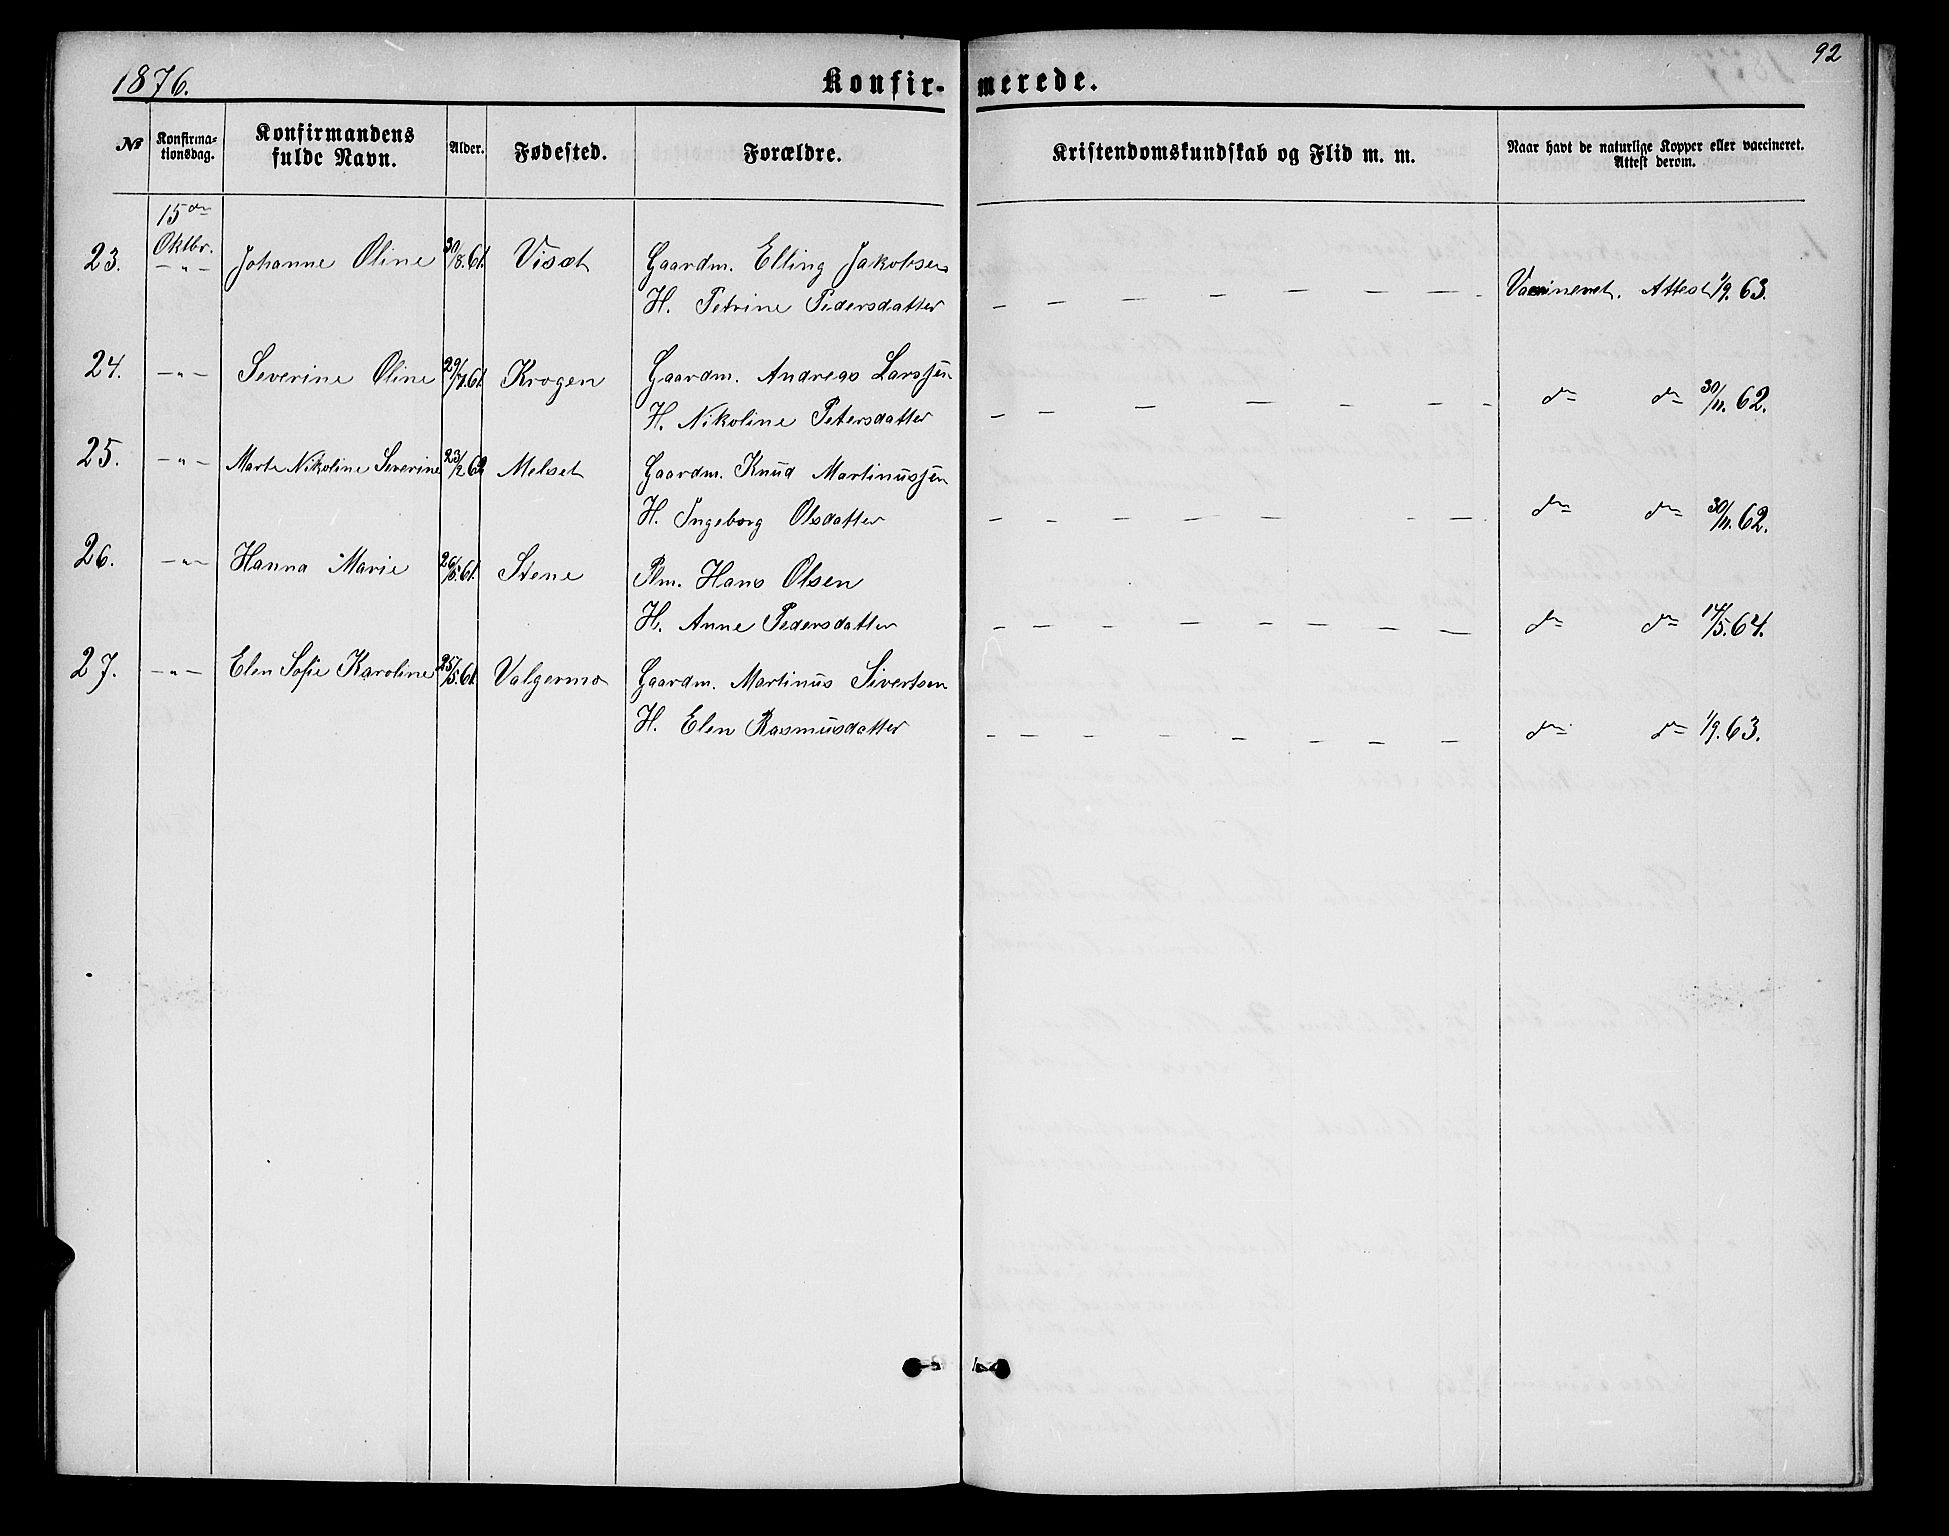 92
1876.
Konfir- merede.
No
Konfirma-
tionsdag.
Konfirmandens
fulde Navn.
Alder.
Fødested.
Forældre.
Kristendomskundskab og Flid m. m.
Naar havt de naturlige Kopper eller vaccineret.
Attest derom.
15de
Oktbr.
23. —"— Johanne Oline 30/8.61. Visæt Gaardm. Elling Jakobsen
H. Petrine Pedersdatter — — — — — — — Vaccineret. Attest 1/9.63.
24. —"— Severine Oline 29/7.61 Krogen Gaardm. Andreas Larssen
H. Nikoline Petersdatter — — — — — — — do do 30/11.62.
25. —"— Marte Nikoline Severine 23/2 62 Melset Gaardm. Knud Martinussen
H. Ingeborg Olsdatter — — — — — — — do do 30/11.62.
26. —"— Hanna Marie 26/5.61. Stene Plm. Hans Olsen
H. Anne Pedersdatter — — — — — — — do do 14/5.64.
27. —"— Elen Sofie Karoline 25/5.61. Valgermo Gaardm. Martinus Sivertsen
H. Elen Rasmusdatter — — — — — — — do do 1/9.63.